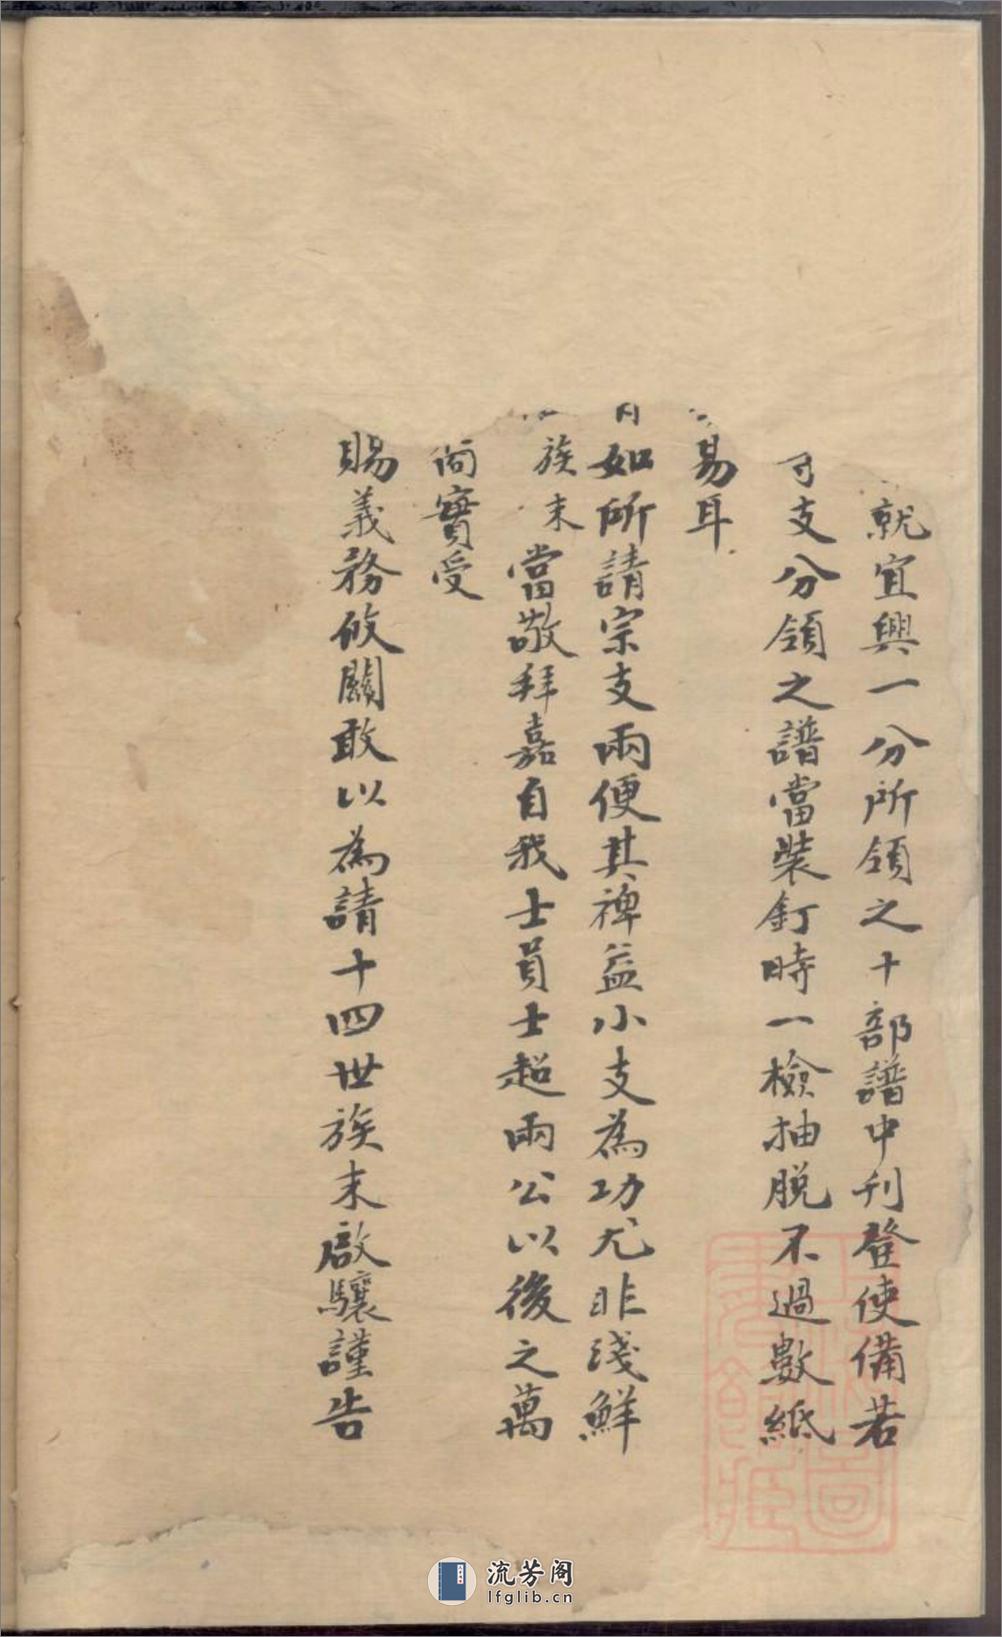 就宜興一分所領之十部譜中刊登使備若
支分領之譜當裝釘時一檢抽脫不過數紙
易耳
如所請宗支兩便其裨益小支為功尤非淺鮮
族末當敬拜嘉自我士員士超兩公以後之萬
實受
賜義務攸關敢以為請十四世族末啟驤謹告
流芳阁
lfglib.cn